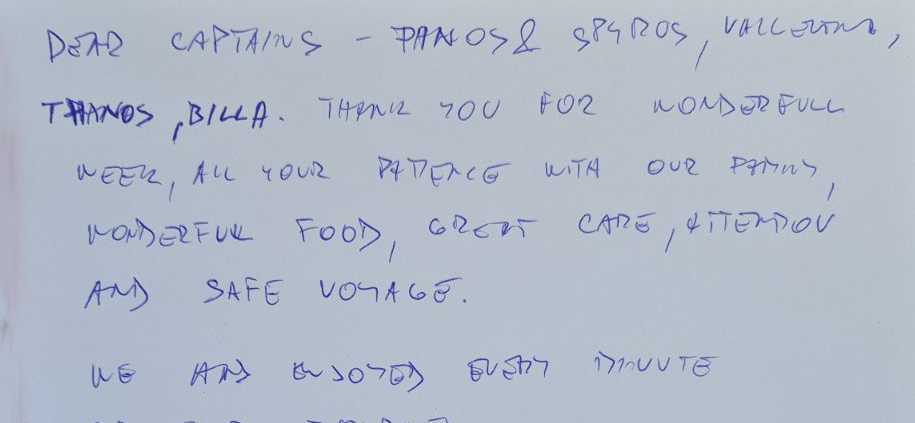 DEAR CAPTAINS - PANOS & SPYROS,
THANOS, BILLA. THANK YOU FOR WONDERFULL
WEEK, ALL YOUR PATIENCE WITH OUR FAMILY,
WONDERFUL FOOD, GREAT CARE, ATTENTION
AND SAFE VOYAGE.
WE ENJOYED EVERY MINUTE